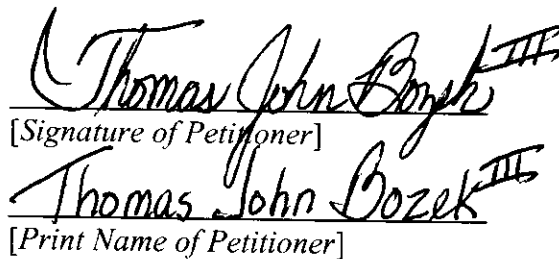 Thomas John Bozek III
[Signature of Petitioner]
Thomas John Bozek III
[Print Name of Petitioner]